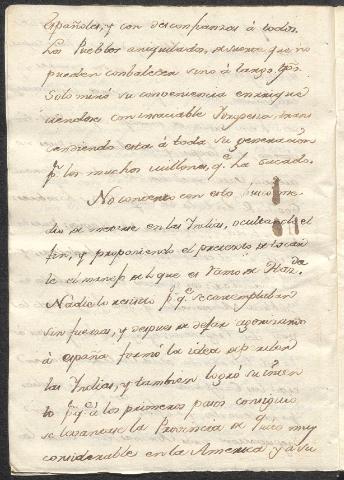 Españoles, y con desconfianzas á todos.
Los Pueblos aniquilados, de suerte que no
pueden combalecer sino á largo tpo.
Solo miró su conveniencia enrique
ciendose con insaciable Torpeza, trans
cendiendo esta á toda su generacion
pr. los muchos millones, qe. ha sacado.
No contento con esto
dio de meterse en las Indias, ocultando el
fin, y proponiendo el pretexto de
le el manejo de lo que es ramo de Hazda.
Nadie lo resistió pr. qe. se contemplaban
sin fuerzas, y despues de dexar agonizando
á España formó la idea de perder
las Indias, y tambien logró su inten
to pr. qe. á los primeros pasos consiguió
se levantase la Provincia de Quito muy
considerable en la America y á su